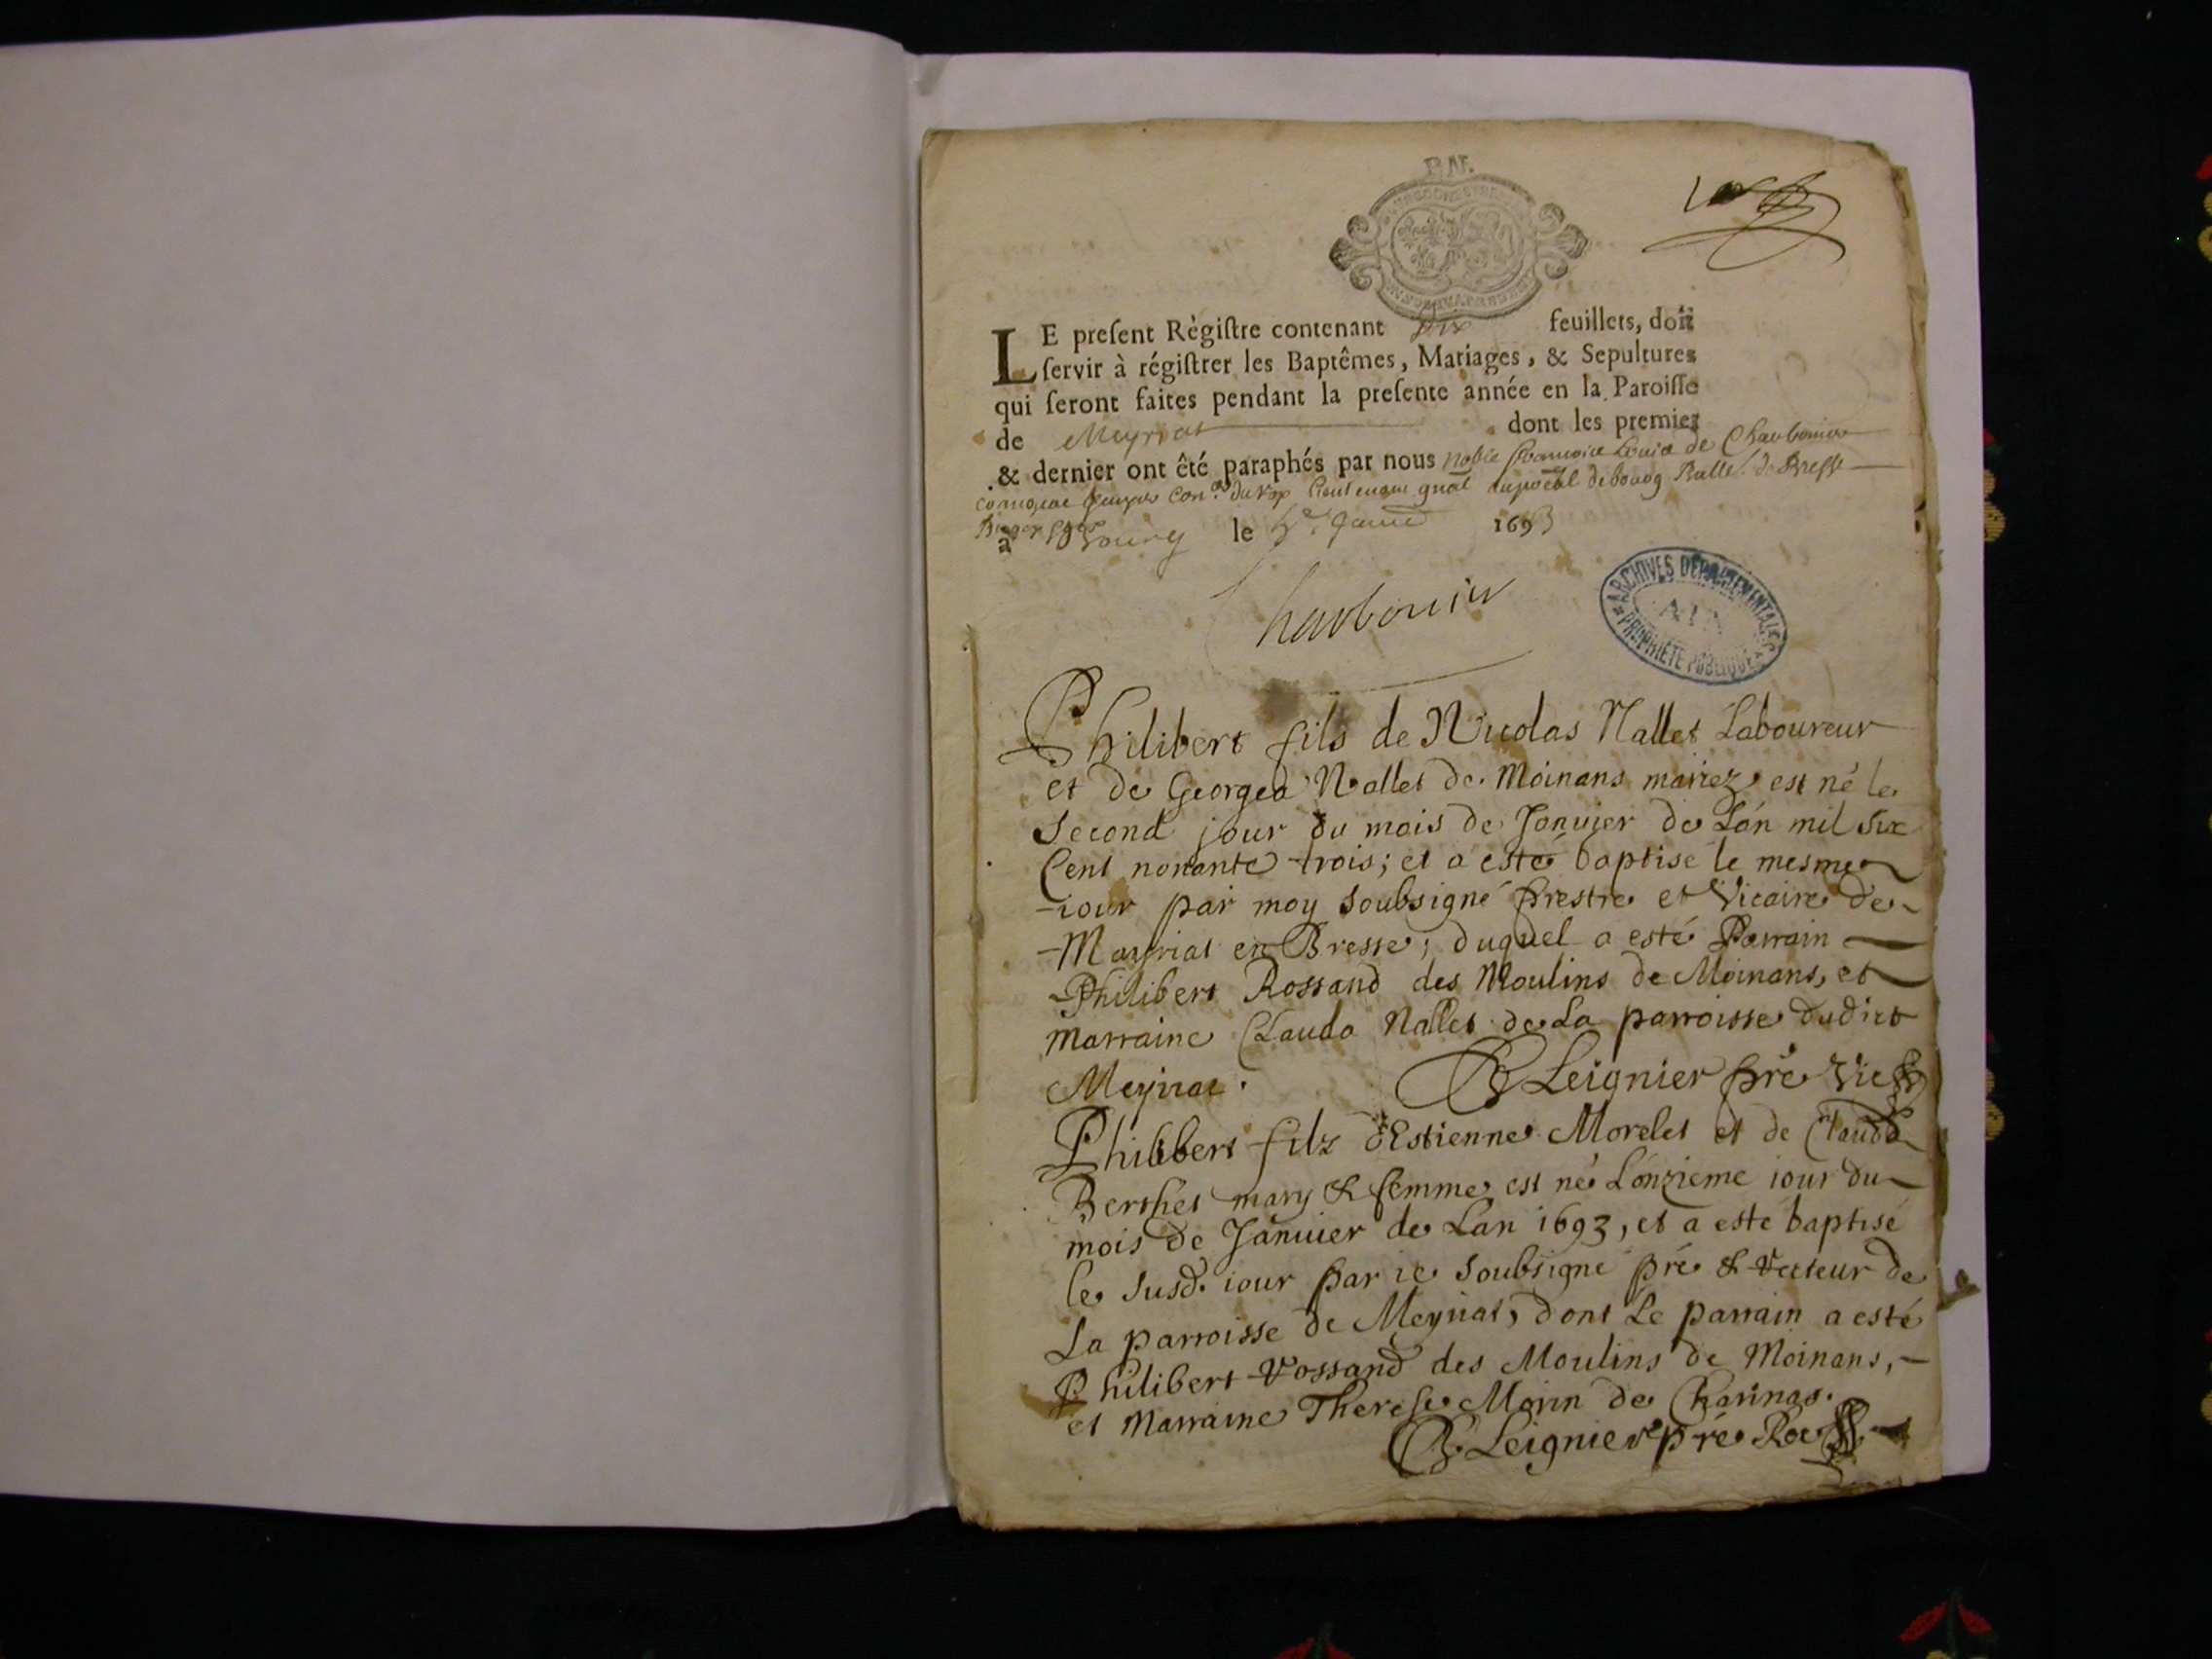 LE preſent Régiſtre contenant Dix feuillets, doit
ſervir à régiſtrer les Baptêmes, Mariages, & Sepultures
qui ſeront faites pendant la preſente année en la Paroiſſe
de Meyriat dont les premier
& dernier ont êté paraphés par nous noble François Louis de Charbonier
lieutenant gnal de bourg de Bresse
à Bourg le 1693
Charbonier
ARCHIVES DÉPARTEMENTALES
AIN
PROPRIÉTÉ PUBLIQUE
Philibert fils de Nicolas Nallet Laboureur
et de Georgea Nallet de Moinans mariez est né le
Second jour du mois de Janvier de Lán mil six
Cent nonante trois; et a esté baptisé le mesme
iour par moy soubsigné prestre et Vicaire de
Mayriat en Bresse; duquel a esté Parrain
Philibert Rossand des Moulins de Moinans, et
Marraine Clauda Nallet de La parroisse dudict
Meyriat. B Leignier pré Vic
Philibert filz d'Estienne Morelet et de Clauda
Berthet mary & femme est né Lónzieme iour du
mois de Janvier de Lan 1693, et a esté baptisé
le susd. iour par ie soubsigné pré & Recteur de
La parroisse de Meyriat, dont Le parrain a esté
Philibert Rossand des Moulins de Moinans,
et Marraine Therese Morin de Charinas.
B. Leignier pré Rec